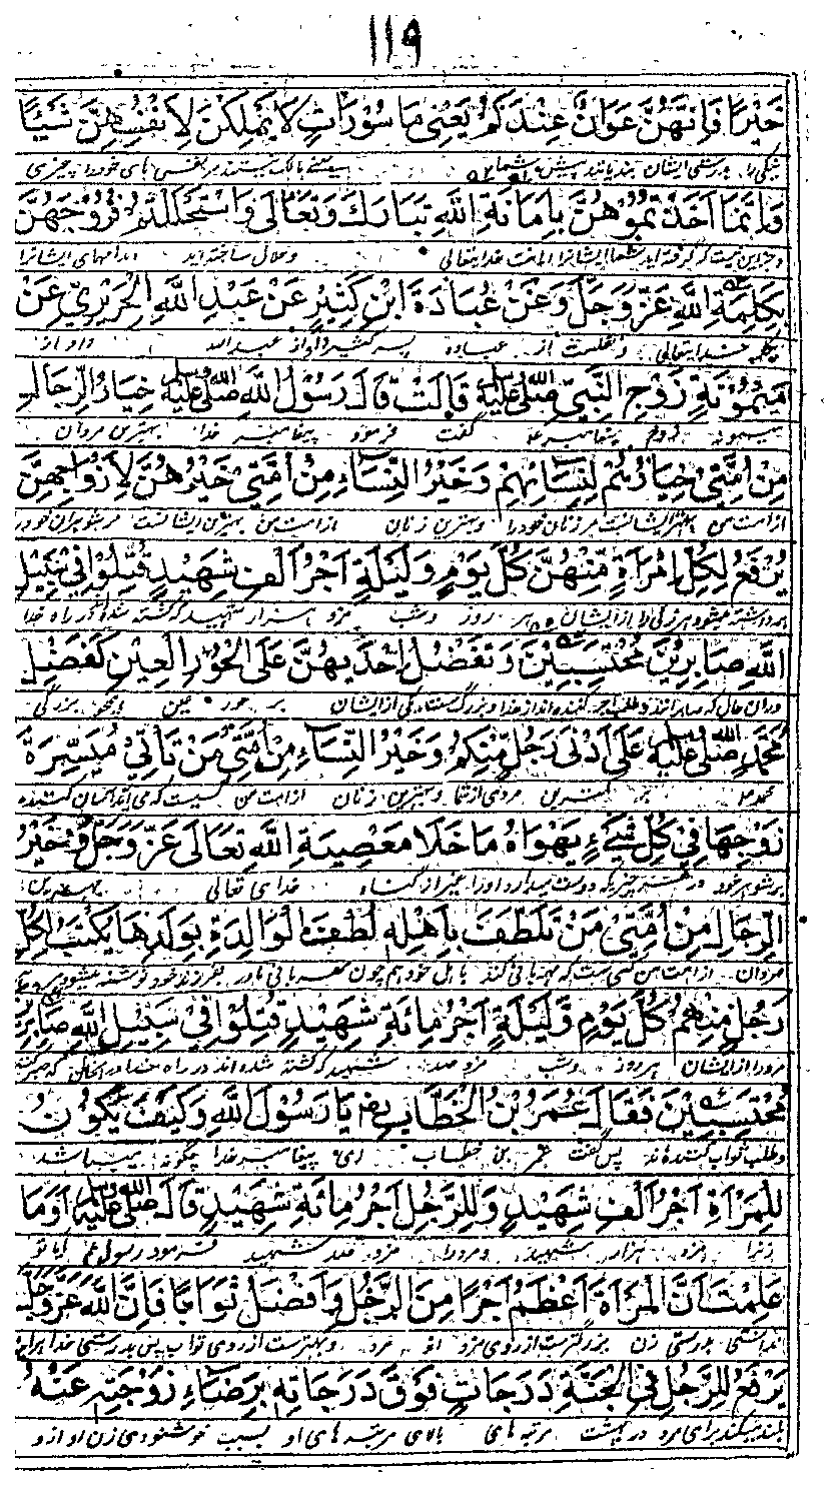 ۱۱۹
خَيْرًا فَاِنَّهُنَّ عَوَانٌ عِنْدَكُمْ يَعْنِى مَاسُوْرَاتٍ لَا يَمْلِكْنَ لِاَنْفُسِهِنَّ شَيْئًا
بندیانند پیش شما
وَاِنَّمَا اَخَذْتُمُوْهُنَّ بِاَمَانَةِ اللّٰهِ تَبَارَكَ وَتَعَالٰى وَاسْتَحْلَلْتُمْ فُرُوْجَهُنَّ
وجزاین نیست که گرفته اید شما ایشانرا امانت خدایتعالی وحلال ساخته اید اندامهای ایشانرا
بِكَلِمَةِ اللّٰهِ عَزَّ وَجَلَّ وَعَنْ عُبَادَةَ ابْنِ كَثِيْرٍ عَنْ عَبْدِ اللّٰهِ الْحَرِيْرِيِّ عَنْ
از عباده پسر کثیر و او از عبدالله و او از
مَيْمُوْنَةَ زَوْجِ النَّبِيِّ صَلَّى اللّٰهُ عَلَيْهِ وَسَلَّمَ قَالَتْ قَالَ رَسُوْلُ اللّٰهِ صَلَّى اللّٰهُ عَلَيْهِ وَسَلَّمَ خِيَارُ الرِّجَالِ
میمونه زوج پیغامبر گفت فرمود پیغامبر خدا بهترین مردان
مِنْ اُمَّتِيْ خِيَارُهُمْ لِنِسَائِهِمْ وَخَيْرُ النِّسَاءِ مِنْ اُمَّتِيْ خَيْرُهُنَّ لِاَزْوَاجِهِنَّ
از امت من بهتر ایشانست مر زنان خود را و بهترین زنان از امت من بهترین ایشانست مر شوهران خود را
يُرْفَعُ لِكُلِّ امْرَاَةٍ مِّنْهُنَّ كُلَّ يَوْمٍ وَلَيْلَةٍ اَجْرُ اَلْفِ شَهِيْدٍ قُتِلُوْا فِيْ سَبِيْلِ
برداشته میشود هر زنی را از ایشان هر روز وشب مزد هزار شهید که کشته شده اند در راه خدا
اللّٰهِ صَابِرِيْنَ مُحْتَسِبِيْنَ وَتَفْضُلُ اِحْدٰيهُنَّ عَلَى الْحُوْرِ الْعِيْنِ كَفَضْلِ
از ایشان بر حور عین همچو بزرگی
مُحَمَّدٍ صَلَّى اللّٰهُ عَلَيْهِ وَسَلَّمَ عَلٰى اَدْنٰى رَجُلٍ مِّنْكُمْ وَخَيْرُ النِّسَاءِ مِنْ اُمَّتِيْ مَنْ تَاْتِيْ مَيَسِّرَةً
محمد بر کمترین مردی از شما و بهترین زنان از امت من کسیست که می آید آسان کننده
زَوْجِهَا فِيْ كُلِّ شَيْءٍ يَهْوَاهُ مَا خَلَا مَعْصِيَةَ اللّٰهِ تَعَالٰى عَزَّ وَجَلَّ وَخَيْرُ
بر شوهر خود در هر چیزیکه دوست میدارد اورا بغیر از گناه خدای تعالی
الرِّجَالِ مِنْ اُمَّتِيْ مَنْ تَلَطَّفَ بِاَهْلِهٖ لُطْفَ الْوَالِدَةِ بِوَلَدِهَا يُكْتَبُ لِكُلِّ
مردان از امت من کسی ست که مهربانی کند با اهل خود هم چون مهربانی مادر بفرزند خود نوشته میشود
رَجُلٍ مِنْهُمْ كُلَّ يَوْمٍ وَّلَيْلَةٍ اَجْرُ مِائَةِ شَهِيْدٍ قُتِلُوْا فِيْ سَبِيْلِ اللّٰهِ صَابِرِيْنَ
مرد را از ایشان هر روز وشب مزد صد شهید که کشته شده اند در راه خدا
مُحْتَسِبِيْنَ فَقَالَ عُمَرُ بْنُ الْخَطَّابِ رض يَا رَسُوْلَ اللّٰهِ وَكَيْفَ يَكُوْنُ
وطلب ثواب کننده اند پس گفت عمر بن خطاب ای پیغامبر خدا چگونه میباشد
لِلْمَرْاَةِ اَجْرُ اَلْفِ شَهِيْدٍ وَلِلرَّجُلِ اَجْرُ مِائَةِ شَهِيْدٍ قَالَ صَلَّى اللّٰهُ عَلَيْهِ وَسَلَّمَ اَوَمَا
زنرا مزد هزار شهید ومرد را مزد صد شهید فرمود رسول
عَلِمْتَ اَنَّ الْمَرْاَةَ اَعْظَمُ اَجْرًا مِنَ الرَّجُلِ وَاَفْضَلُ ثَوَابًا فَاِنَّ اللّٰهَ عَزَّ وَجَلَّ
بدرستی زن بزرگترست از روی مزد از مرد و بهترست از روی ثواب پس بدرستی خدا
يَرْفَعُ لِلرَّجُلِ فِي الْجَنَّةِ دَرَجَاتٍ فَوْقَ دَرَجَاتِهٖ بِرَضَاءِ زَوْجَتِهٖ عَنْهُ
بلند میکند برای مرد در بهشت مرتبه های بالای مرتبه های او بسبب خوشنودی زن او از و